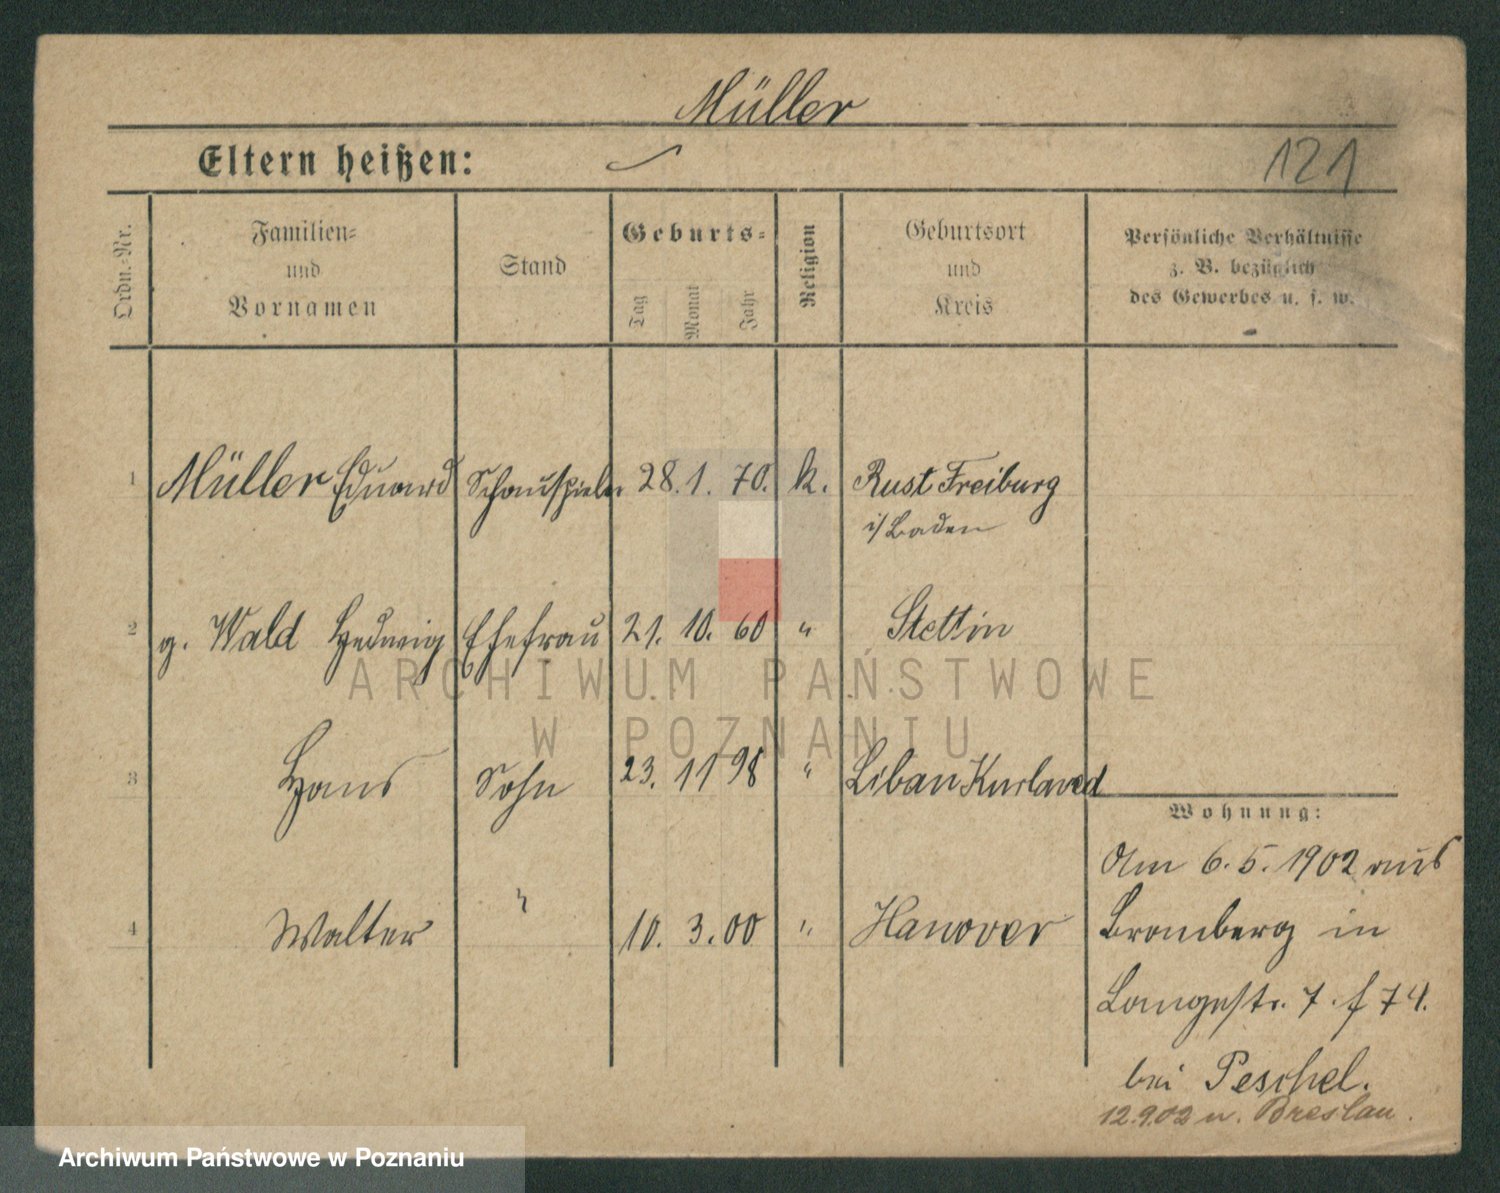 Müller
Eltern heißen:
121
Ordn.-Nr.
Familien-
und
Vornamen
Stand
Geburts-
Tag
Monat
Jahr
Religion
Geburtsort
und
Kreis
Persönliche Verhältnisse
z. B. bezüglich
des Gewerbes u. s. w.
1 Müller Eduard Schauspieler 28. 1. 70. k. Rust Freiburg
i/ Baden
2 g. Wald Hedwig Ehefrau 21. 10. 60 " Stettin
ARCHIWUM PAŃSTWOWE
W POZNANIU
3 Hans Sohn 23. 11 98 " Liban Kurland
Wohnung:
Am 6. 5. 1902 aus
4 Walter " 10. 3. 00 " Hanover
Bromberg in
Langestr. 7. f 74.
bei Peschel.
12.9.02 n. Breslau.
Archiwum Państwowe w Poznaniu